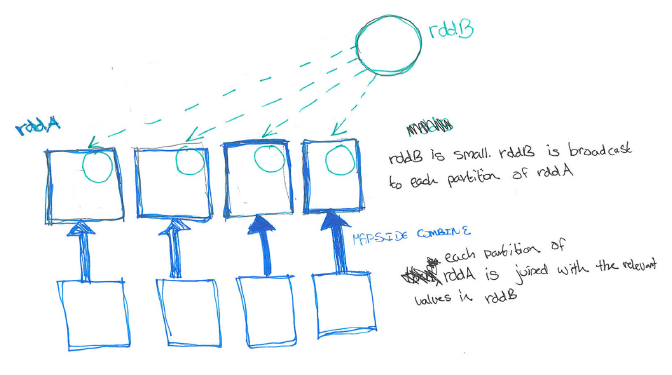 rddB
rddA
rddB is small. rddB is broadcast
to each partition of rddA
MAPSIDE COMBINE
each partition of
rddA is joined with the relevant
values in rddB